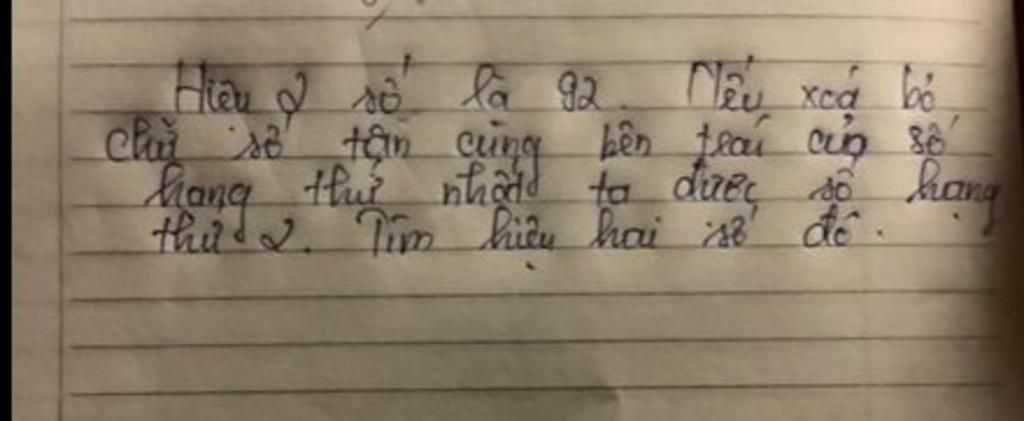 Hiệu 2 số là 92. Nếu xoá bỏ
chữ số tận cùng bên trái của số
hạng thứ nhất ta được số hạng
thứ 2. Tìm hiệu hai số đó.